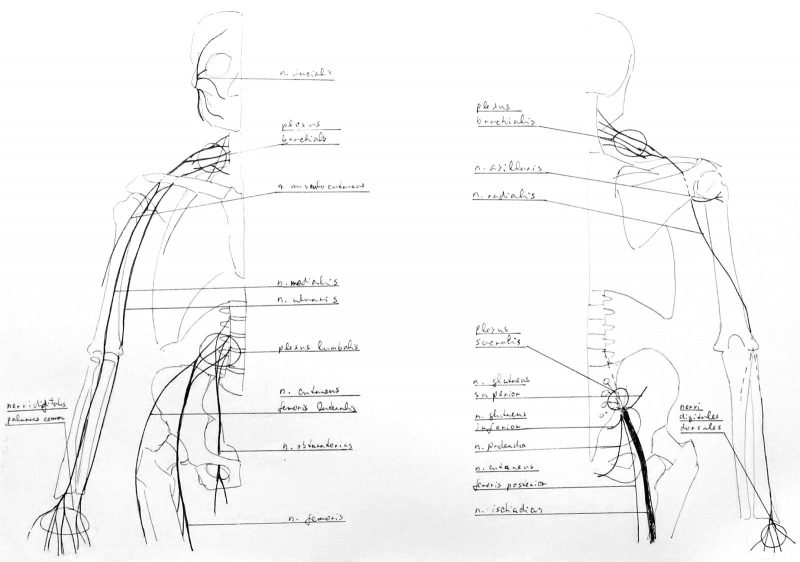 n. facialis
plexus
brachialis
n. musculocutaneus
n. medialis
n. ulnaris
plexus lumbalis
n. cutaneus
femoris lateralis
n. obturatorius
n. femoris
nervi digitales
palmares comm
plexus
brachialis
n. axillaris
n. radialis
plexus
sacralis
n. gluteus
superior
n. gluteus
inferior
n. pudendus
n. cutaneus
femoris posterior
n. ischiadicus
nervi
digitales
dorsales